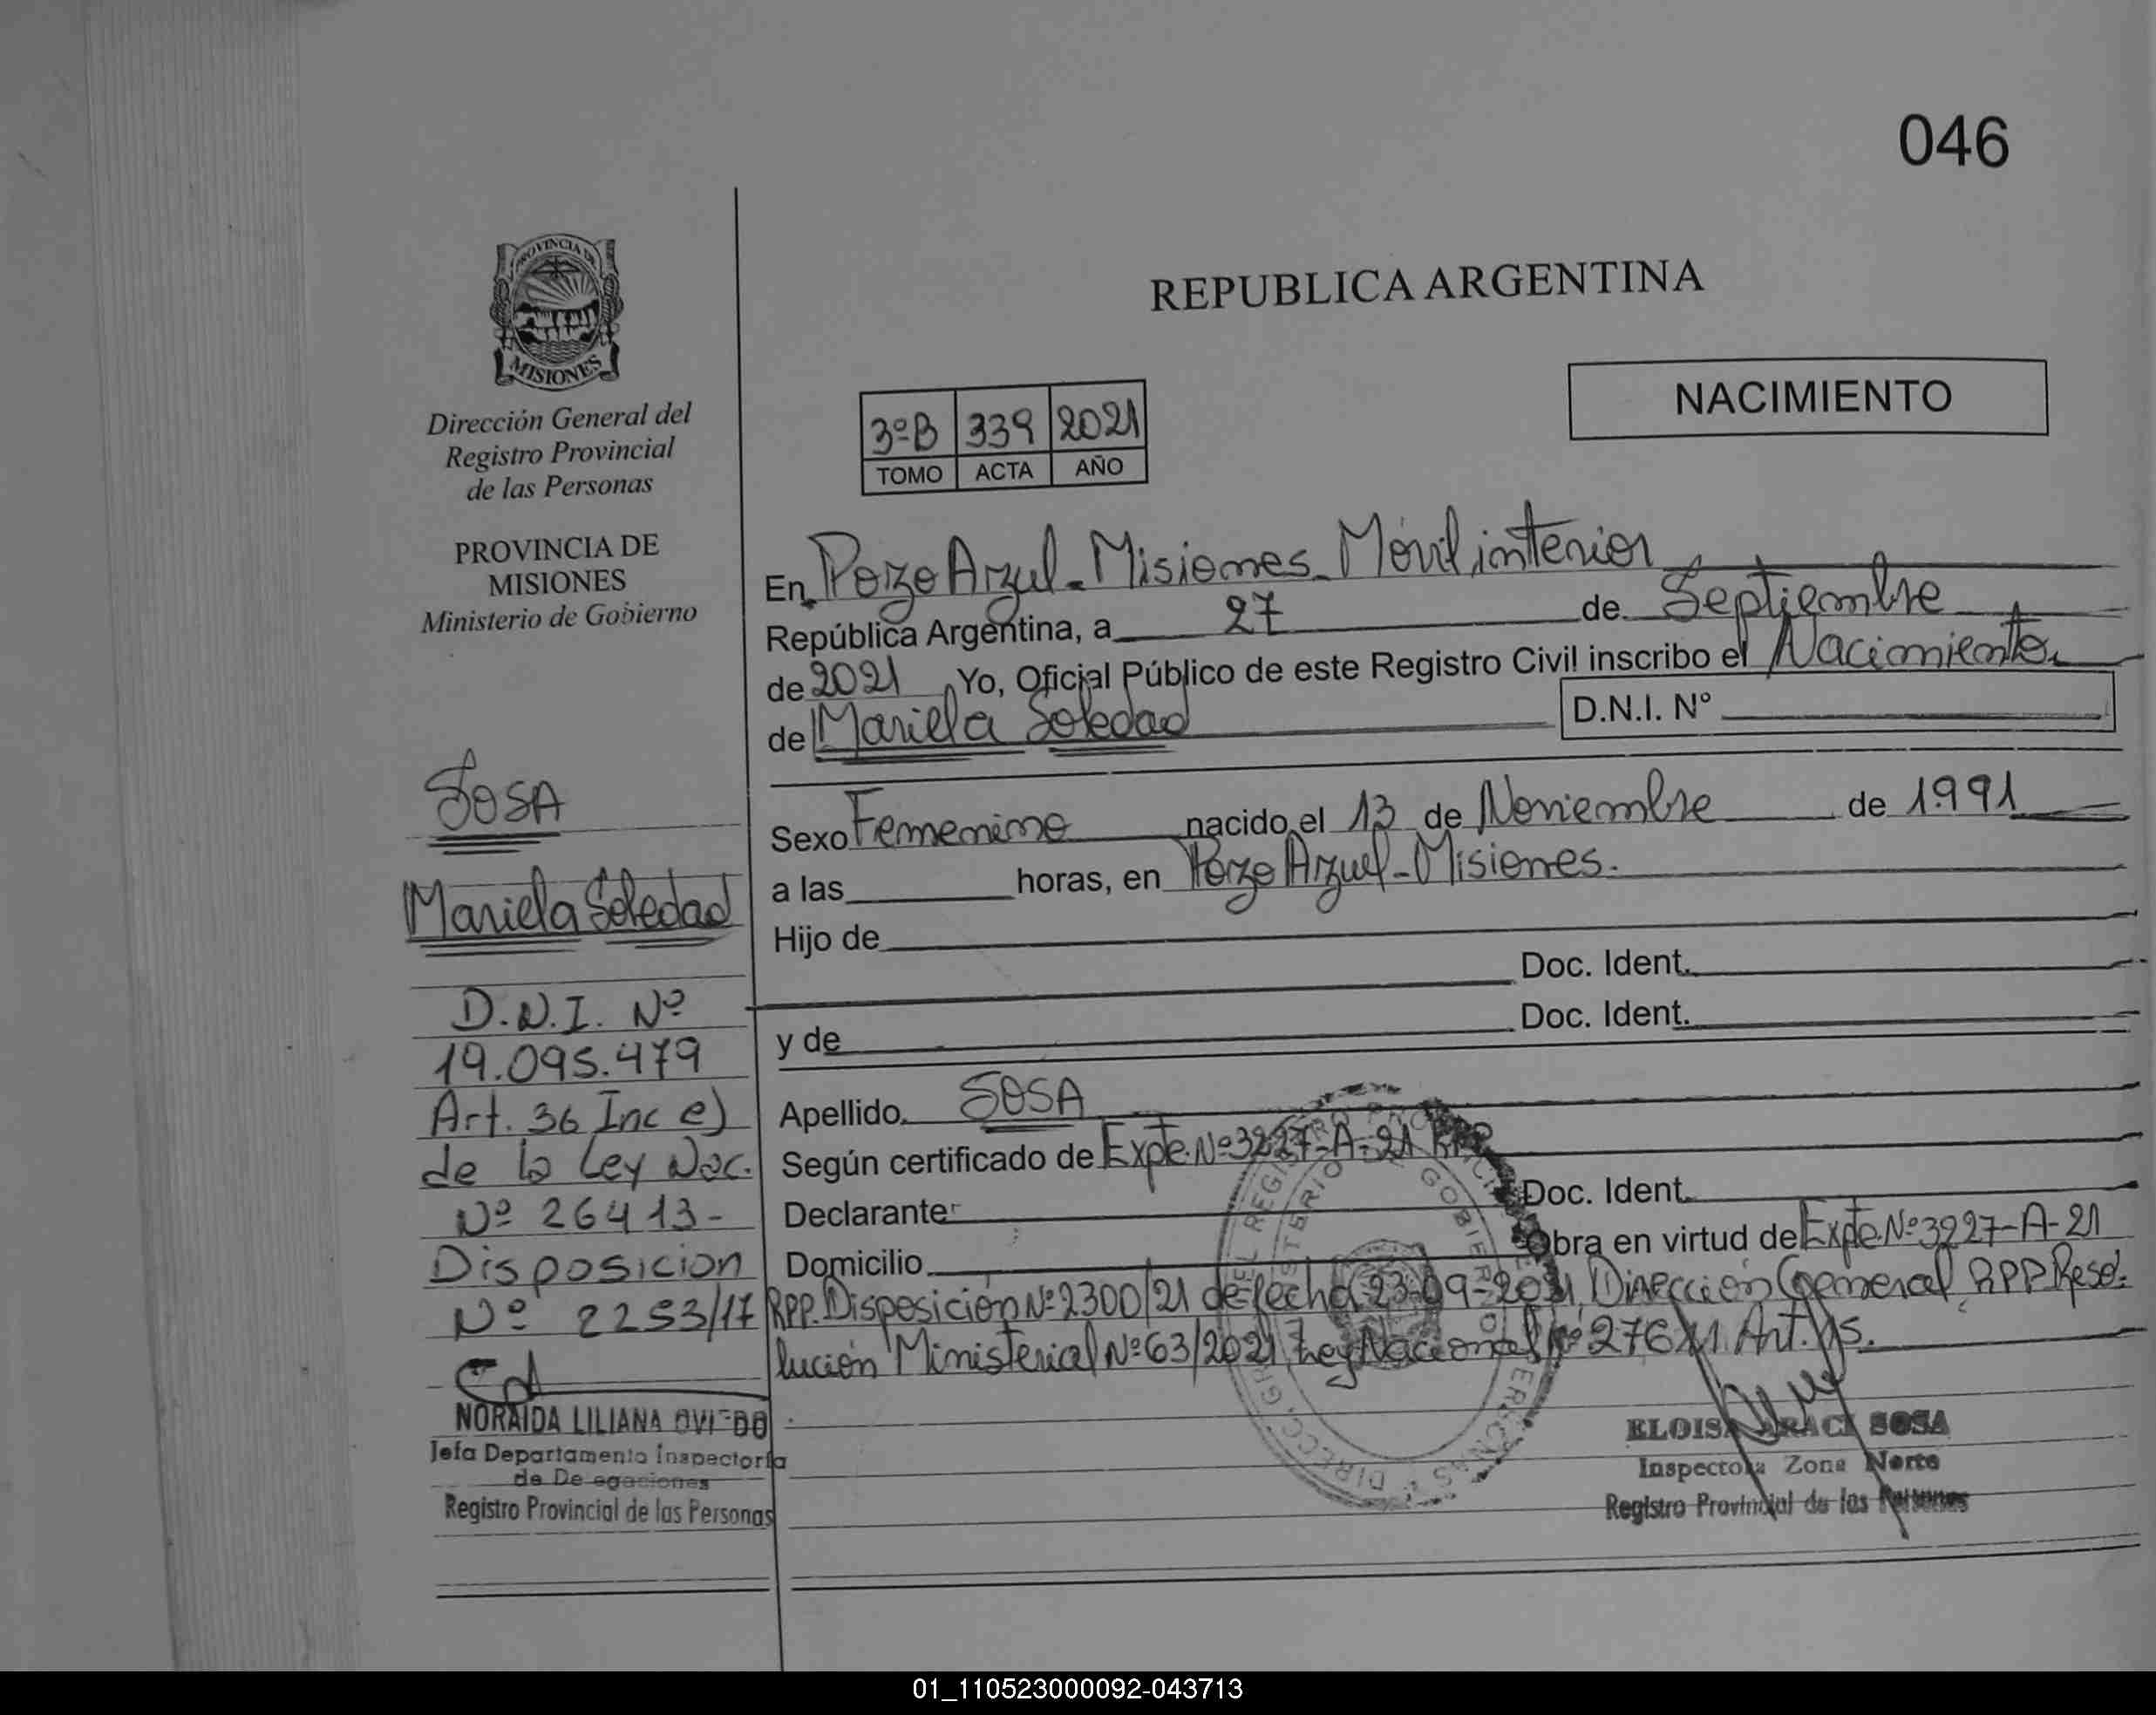 046
PROVINCIA DE
MISIONES
Dirección General del
Registro Provincial
de las Personas
PROVINCIA DE
MISIONES
Ministerio de Gobierno
SOSA
Mariela Soledad
D.N.I. Nº
19.095.479
Art. 36 Inc e)
de la Ley Nac.
Nº 26413-
Disposicion
Nº 2253/17
NORAIDA LILIANA OVIEDO
Jefa Departamento Inspectoría
de Delegaciones
Registro Provincial de las Personas
REPUBLICA ARGENTINA
NACIMIENTO
3ºB 339 2021
TOMO ACTA AÑO
En Pozo Azul - Misiones - Móvil interior
República Argentina, a 27 de Septiembre
de 2021 , Yo, Oficial Público de este Registro Civil inscribo el Nacimiento
de Mariela Soledad D.N.I. N°
Sexo Femenino nacido el 13 de Noviembre de 1991
a las horas, en Pozo Azul - Misiones.
Hijo de
Doc. Ident.
y de Doc. Ident.
Apellido SOSA
Según certificado de Expte. Nº 3227-A-21 RPP
Declarante Doc. Ident.
Domicilio Obra en virtud de Expte Nº 3227-A-21
RPP. Disposición Nº 2300/21 de fecha 23-09-2021, Dirección General RPP. Reso-
lución Ministerial Nº 63/2021, Ley Nacional Nº 27611 Art.
ELOISA ARACI SOSA
Inspectora Zona Norte
Registro Provincial de las Personas
01_110523000092-043713